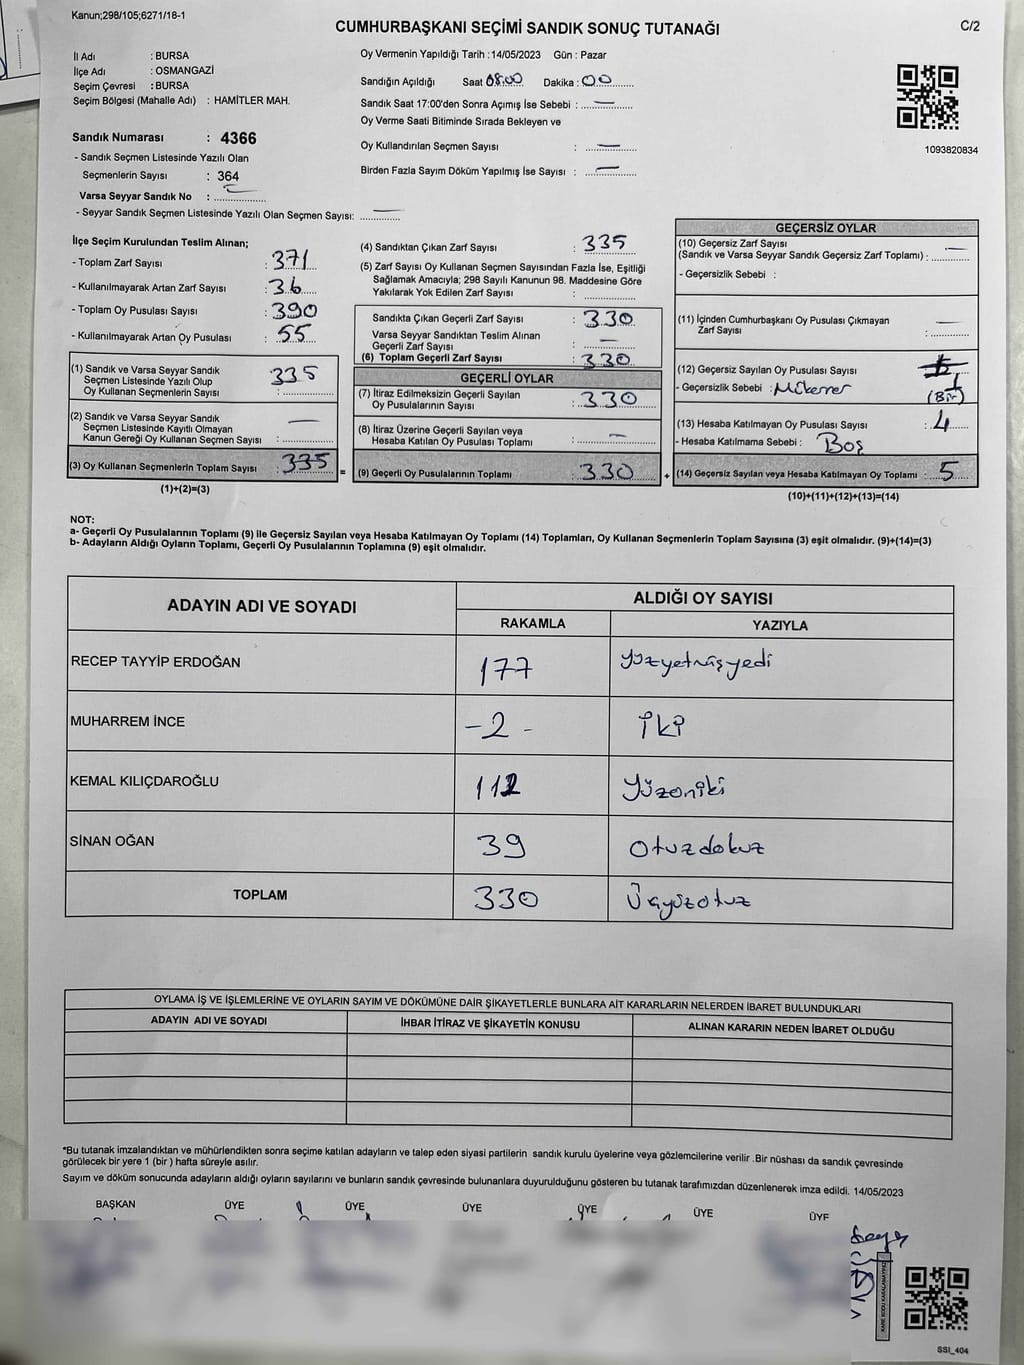 Kanun;298/105;6271/18-1
CUMHURBAŞKANI SEÇİMİ SANDIK SONUÇ TUTANAĞI
C/2
İl Adı : BURSA
İlçe Adı : OSMANGAZİ
Seçim Çevresi : BURSA
Seçim Bölgesi (Mahalle Adı) : HAMİTLER MAH.
Sandık Numarası : 4366
- Sandık Seçmen Listesinde Yazılı Olan
Seçmenlerin Sayısı : 364
Varsa Seyyar Sandık No : —
- Seyyar Sandık Seçmen Listesinde Yazılı Olan Seçmen Sayısı: —
Oy Vermenin Yapıldığı Tarih :14/05/2023 Gün : Pazar
Sandığın Açıldığı Saat 08.00 Dakika : 00
Sandık Saat 17:00'den Sonra Açımış İse Sebebi : —
Oy Verme Saati Bitiminde Sırada Bekleyen ve
Oy Kullandırılan Seçmen Sayısı : —
Birden Fazla Sayım Döküm Yapılmış İse Sayısı : —
1093820834
İlçe Seçim Kurulundan Teslim Alınan;
- Toplam Zarf Sayısı : 371
- Kullanılmayarak Artan Zarf Sayısı : 36
- Toplam Oy Pusulası Sayısı : 390
- Kullanılmayarak Artan Oy Pusulası : 55
(1) Sandık ve Varsa Seyyar Sandık
Seçmen Listesinde Yazılı Olup
Oy Kullanan Seçmenlerin Sayısı : 335
(2) Sandık ve Varsa Seyyar Sandık
Seçmen Listesinde Kayıtlı Olmayan
Kanun Gereği Oy Kullanan Seçmen Sayısı : —
(3) Oy Kullanan Seçmenlerin Toplam Sayısı : 335
(1)+(2)=(3)
=
(4) Sandıktan Çıkan Zarf Sayısı : 335
(5) Zarf Sayısı Oy Kullanan Seçmen Sayısından Fazla İse, Eşitliği
Sağlamak Amacıyla; 298 Sayılı Kanunun 98. Maddesine Göre
Yakılarak Yok Edilen Zarf Sayısı :
Sandıkta Çıkan Geçerli Zarf Sayısı : 330
Varsa Seyyar Sandıktan Teslim Alınan
Geçerli Zarf Sayısı : —
(6) Toplam Geçerli Zarf Sayısı : 330
GEÇERLİ OYLAR
(7) İtiraz Edilmeksizin Geçerli Sayılan
Oy Pusulalarının Sayısı : 330
(8) İtiraz Üzerine Geçerli Sayılan veya
Hesaba Katılan Oy Pusulası Toplamı : —
(9) Geçerli Oy Pusulalarının Toplamı : 330
+
GEÇERSİZ OYLAR
(10) Geçersiz Zarf Sayısı
(Sandık ve Varsa Seyyar Sandık Geçersiz Zarf Toplamı) : —
- Geçersizlik Sebebi :
(11) İçinden Cumhurbaşkanı Oy Pusulası Çıkmayan
Zarf Sayısı : —
(12) Geçersiz Sayılan Oy Pusulası Sayısı : 1
- Geçersizlik Sebebi : Mükerrer (Bir)
(13) Hesaba Katılmayan Oy Pusulası Sayısı : 4
- Hesaba Katılmama Sebebi : Boş
(14) Geçersiz Sayılan veya Hesaba Katılmayan Oy Toplamı : 5
(10)+(11)+(12)+(13)=(14)
NOT:
a- Geçerli Oy Pusulalarının Toplamı (9) ile Geçersiz Sayılan veya Hesaba Katılmayan Oy Toplamı (14) Toplamları, Oy Kullanan Seçmenlerin Toplam Sayısına (3) eşit olmalıdır. (9)+(14)=(3)
b- Adayların Aldığı Oyların Toplamı, Geçerli Oy Pusulalarının Toplamına (9) eşit olmalıdır.
ADAYIN ADI VE SOYADI
ALDIĞI OY SAYISI
RAKAMLA YAZIYLA
RECEP TAYYİP ERDOĞAN 177 yüzyetmişyedi
MUHARREM İNCE -2- iki
KEMAL KILIÇDAROĞLU 112 Yüzoniki
SİNAN OĞAN 39 Otuzdokuz
TOPLAM 330 Üçyüzotuz
OYLAMA İŞ VE İŞLEMLERİNE VE OYLARIN SAYIM VE DÖKÜMÜNE DAİR ŞİKAYETLERLE BUNLARA AİT KARARLARIN NELERDEN İBARET BULUNDUKLARI
ADAYIN ADI VE SOYADI İHBAR İTİRAZ VE ŞİKAYETİN KONUSU ALINAN KARARIN NEDEN İBARET OLDUĞU
*Bu tutanak imzalandıktan ve mühürlendikten sonra seçime katılan adayların ve talep eden siyasi partilerin sandık kurulu üyelerine veya gözlemcilerine verilir .Bir nüshası da sandık çevresinde
görülecek bir yere 1 (bir ) hafta süreyle asılır.
Sayım ve döküm sonucunda adayların aldığı oyların sayılarını ve bunların sandık çevresinde bulunanlara duyurulduğunu gösteren bu tutanak tarafımızdan düzenlenerek imza edildi. 14/05/2023
BAŞKAN ÜYE ÜYE ÜYE ÜYE ÜYE ÜYE
KARE KODU KARALAMAYINIZ
SSI_404